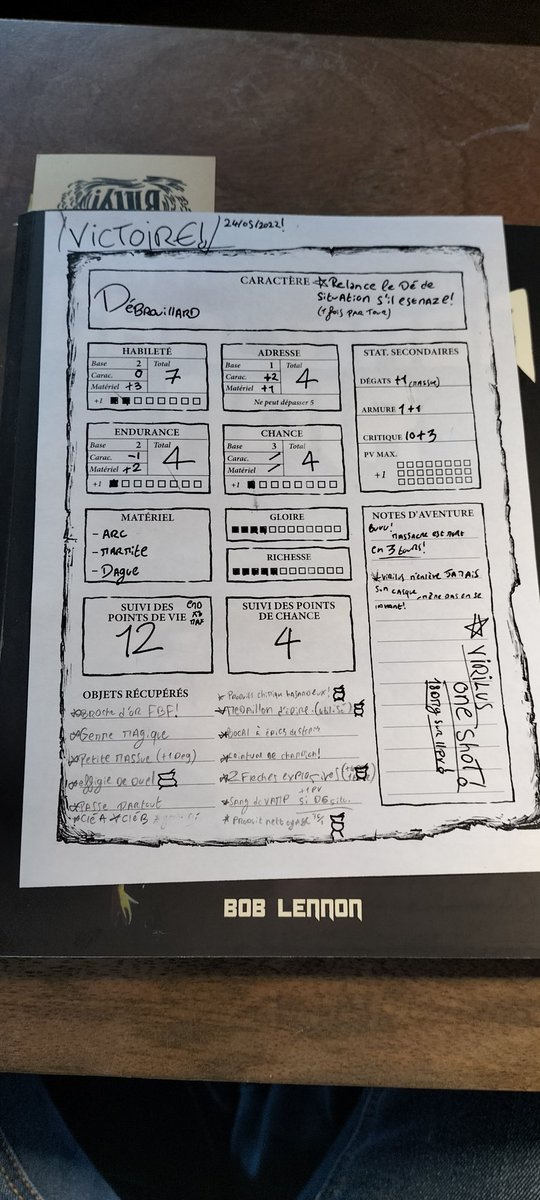 VICTOIRE! 24/05/2022!
CARACTÈRE
DÉBROUILLARD
Relance le Dé de
Situation s'il est naze!
HABILETÉ
Base 2 Total
Carac. 0 7
Matériel +3
+1
ADRESSE
Base 1 Total
Carac. +2 4
Matériel +1
Ne peut dépasser 5
STAT. SECONDAIRES
DÉGATS +1 (massue)
ARMURE 1+1
CRITIQUE 10+3
PV MAX.
+1
ENDURANCE
Base 2 Total
Carac. -1 4
Matériel +2
+1
CHANCE
Base 3 Total
Carac. / 4
Matériel /
+1
MATÉRIEL
- ARC
- MARMITE
- Dague
GLOIRE
RICHESSE
NOTES D'AVENTURE
massacre est mort
en 3 tours!
Virilus n'enlève JAMAIS
son casque
VIRILUS
ONE SHOT!
SUIVI DES
POINTS DE VIE
12
SUIVI DES POINTS
DE CHANCE
4
OBJETS RÉCUPÉRÉS
Broche d'or FBF!
Genre Magique
Petite Massue (+1 Deg)
effigie de duel
Passe Partout
Clé A Clé B
Produit chimique hasardeux!
Médaillon
Bocal à épices
2 Flèches explosives
Sang de vamp +1PV
Produit nettoyage
BOB LENNON